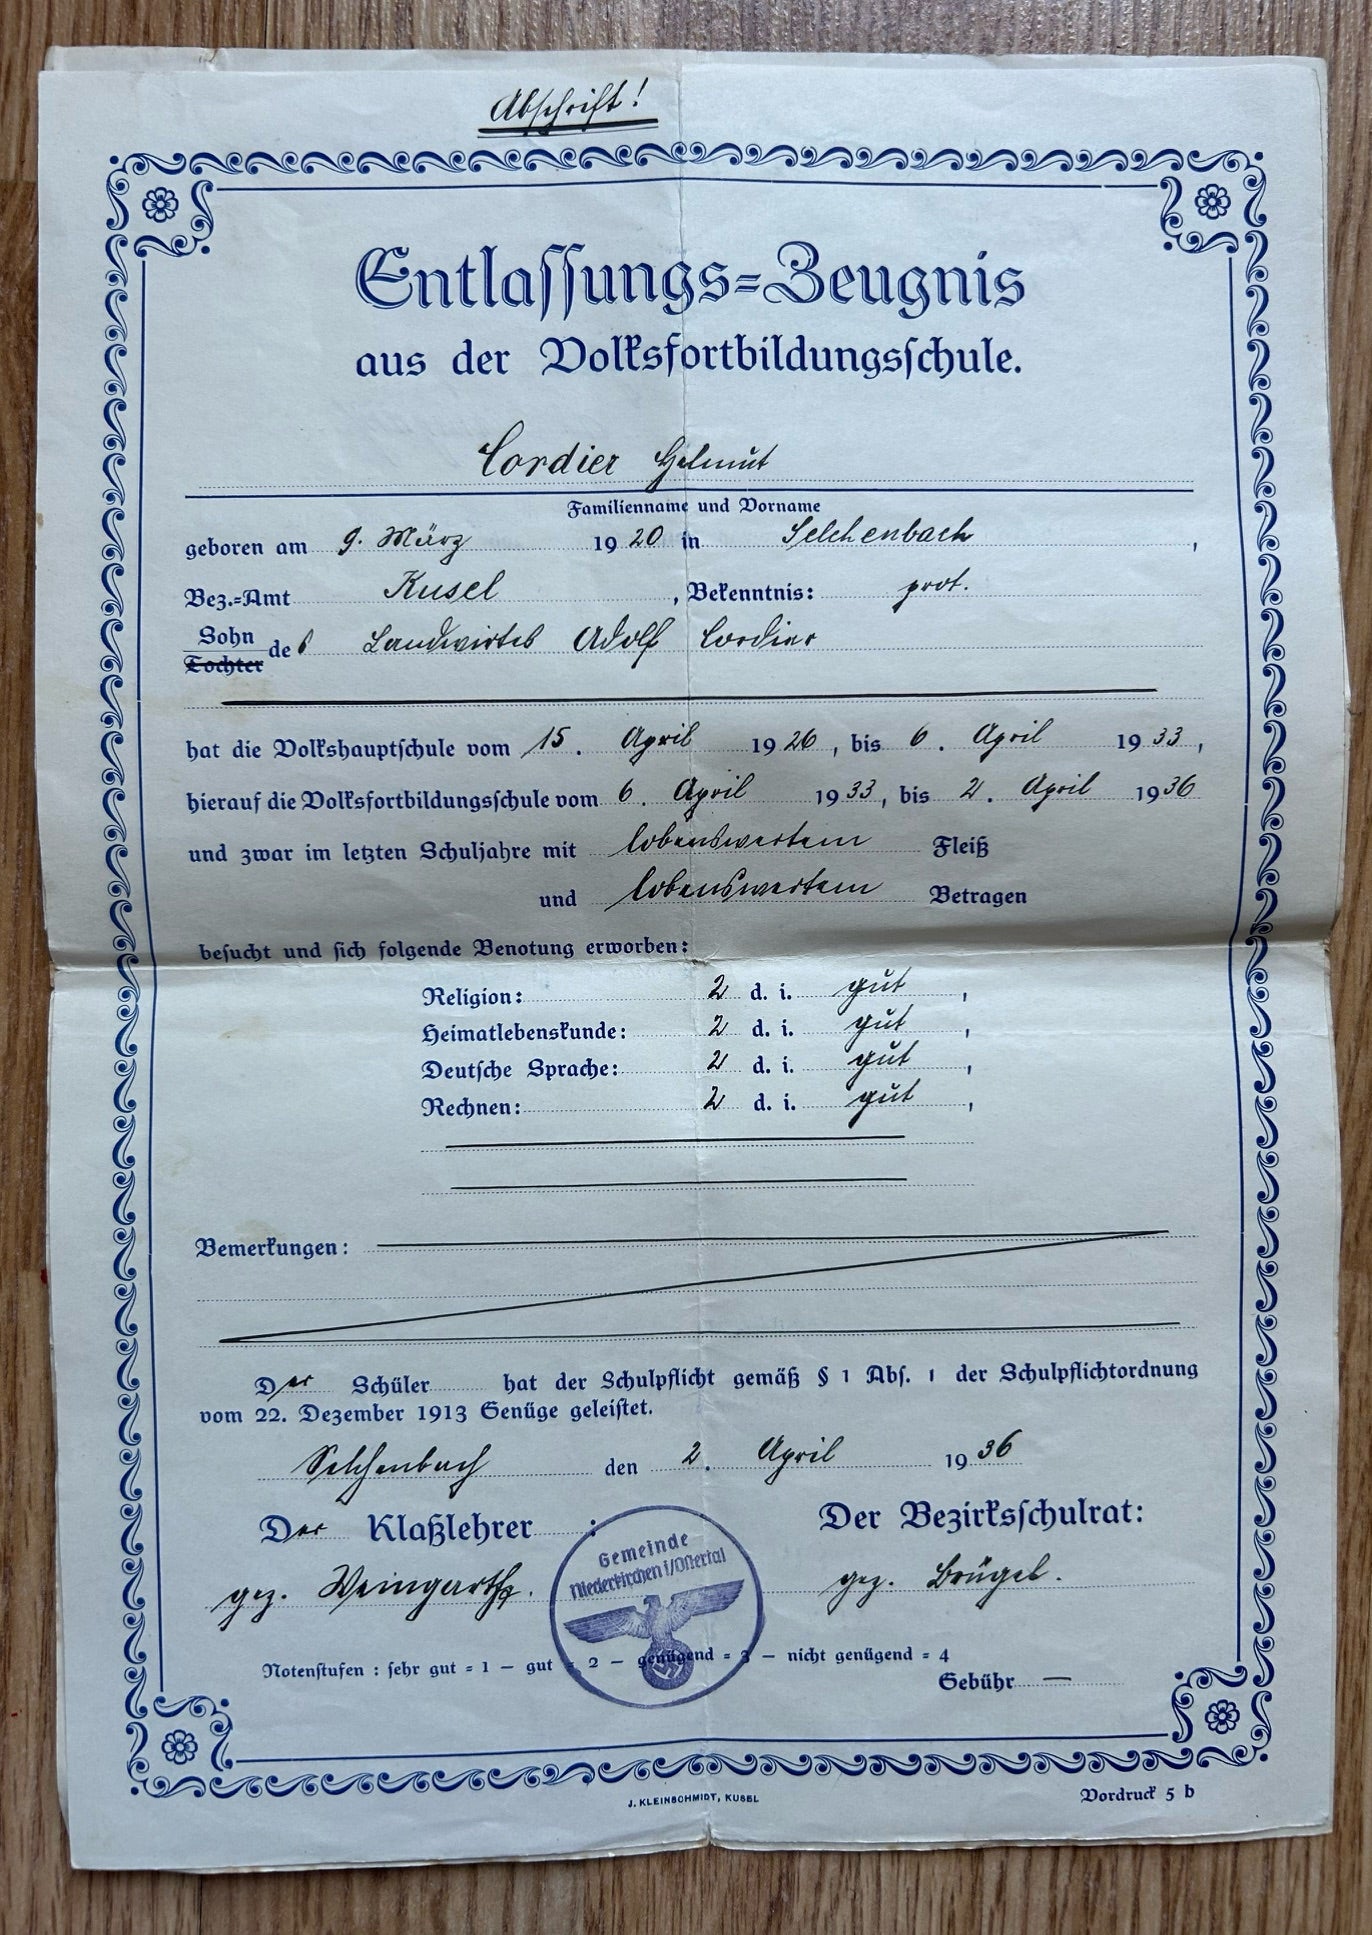 Abschrift!
Entlassungs=Zeugnis
aus der Volksfortbildungsschule.
Cordier Helmut
Familienname und Vorname
geboren am 9. März 1920 in Selchenbach,
Bez.=Amt Kusel, Bekenntnis: prot.
Sohn
Tochter des Landwirtes Adolf Cordier
hat die Volkshauptschule vom 15. April 1926, bis 6. April 1933,
hierauf die Volksfortbildungsschule vom 6. April 1933, bis 2. April 1936
und zwar im letzten Schuljahre mit lobenswertem Fleiß
und lobenswertem Betragen
besucht und sich folgende Benotung erworben:
Religion: 2 d. i. gut,
Heimatlebenskunde: 2 d. i. gut,
Deutsche Sprache: 2 d. i. gut,
Rechnen: 2 d. i. gut,
Bemerkungen:
Der Schüler hat der Schulpflicht gemäß § 1 Abs. 1 der Schulpflichtordnung
vom 22. Dezember 1913 Genüge geleistet.
Selchenbach den 2. April 1936
Der Klaßlehrer:
Der Bezirksschulrat:
gez. Weingarth.
gez. Brügel.
Gemeinde
Niederkirchen i/Ostertal
Notenstufen: sehr gut = 1 – gut = 2 – genügend = 3 – nicht genügend = 4
Gebühr —
J. KLEINSCHMIDT, KUSEL
Vordruck 5 b